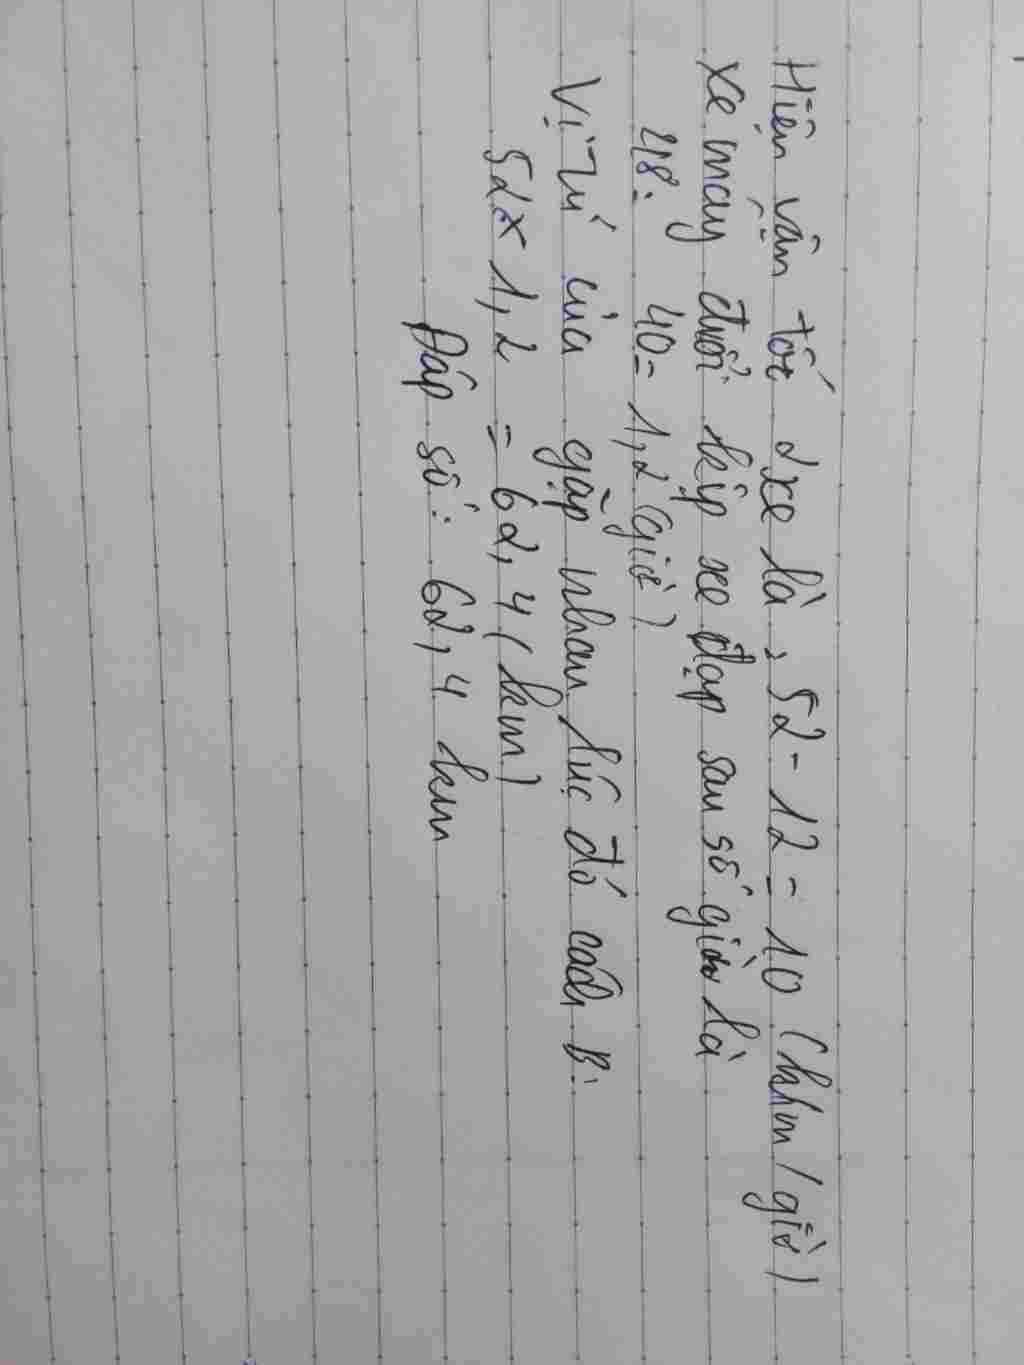 Hiệu vận tốc 2 xe là: 52 - 12 = 10 (km/giờ)
Xe máy đuổi kịp xe đạp sau số giờ là
48: 40 = 1,2 (giờ)
Vị trí của gặp nhau lúc đó cách B:
52 x 1,2 = 62,4 (km)
Đáp số: 62,4 km